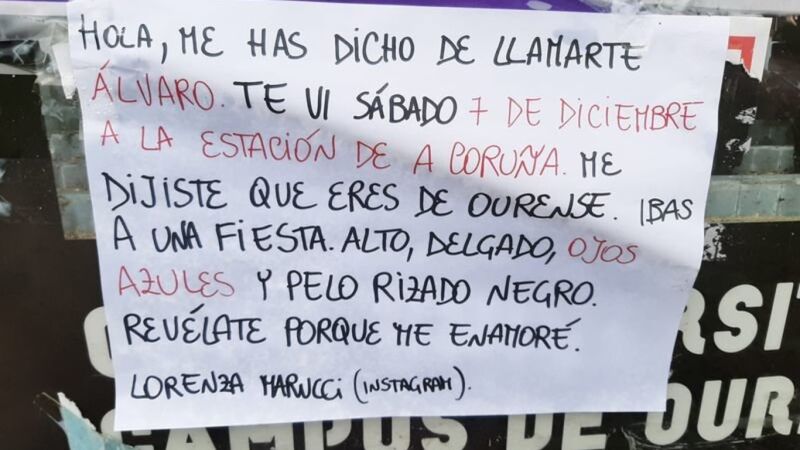 HOLA, ME HAS DICHO DE LLAMARTE
ÁLVARO. TE VI SÁBADO 7 DE DICIEMBRE
A LA ESTACIÓN DE A CORUÑA. ME
DIJISTE QUE ERES DE OURENSE. IBAS
A UNA FIESTA. ALTO, DELGADO, OJOS
AZULES Y PELO RIZADO NEGRO.
REVÉLATE PORQUE ME ENAMORÉ.
LORENZA MARUCCI (INSTAGRAM).
RSIT
CAMPUS DE OUR